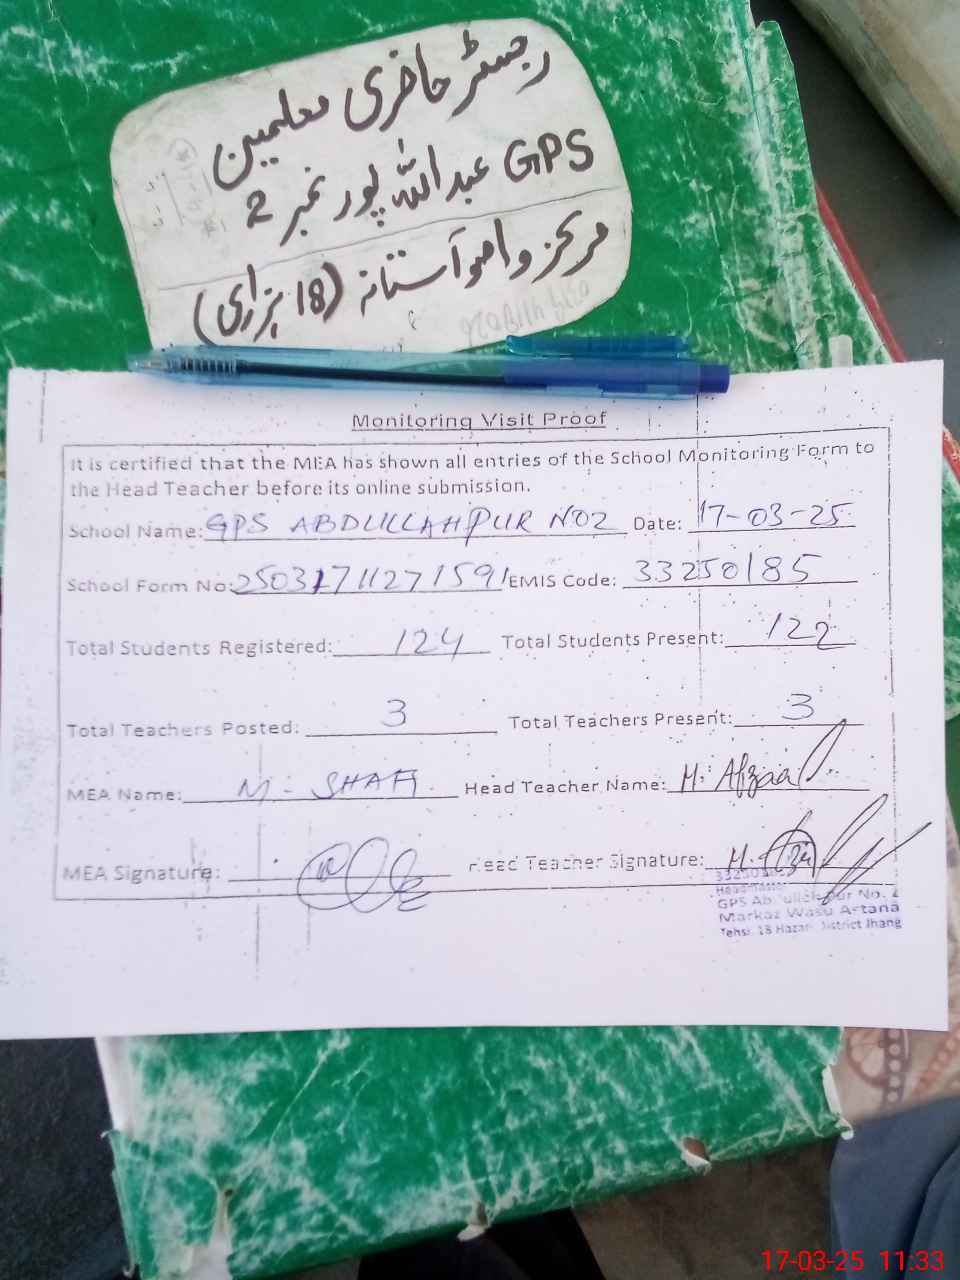 رجسٹر حاضری معلمین
GPS عبداللہ پور نمبر 2
مرکز واصو آستانہ (18 ہزاری)
Monitoring Visit Proof
It is certified that the MEA has shown all entries of the School Monitoring Form to
the Head Teacher before its online submission.
School Name: GPS ABDULLAHPUR NO2 Date: 17-03-25
School Form No: 25031711271591 EMIS Code: 33250185
Total Students Registered: 124 Total Students Present: 122
Total Teachers Posted: 3 Total Teachers Present: 3
MEA Name: M- SHAFI Head Teacher Name: M. Afzaal
MEA Signature: Head Teacher Signature: M. Afzaal
Headmaster
GPS Abdullah Pur No. 2
Markaz Wasu Astana
Tehsi. 18 Hazari District Jhang
17-03-25 11:33